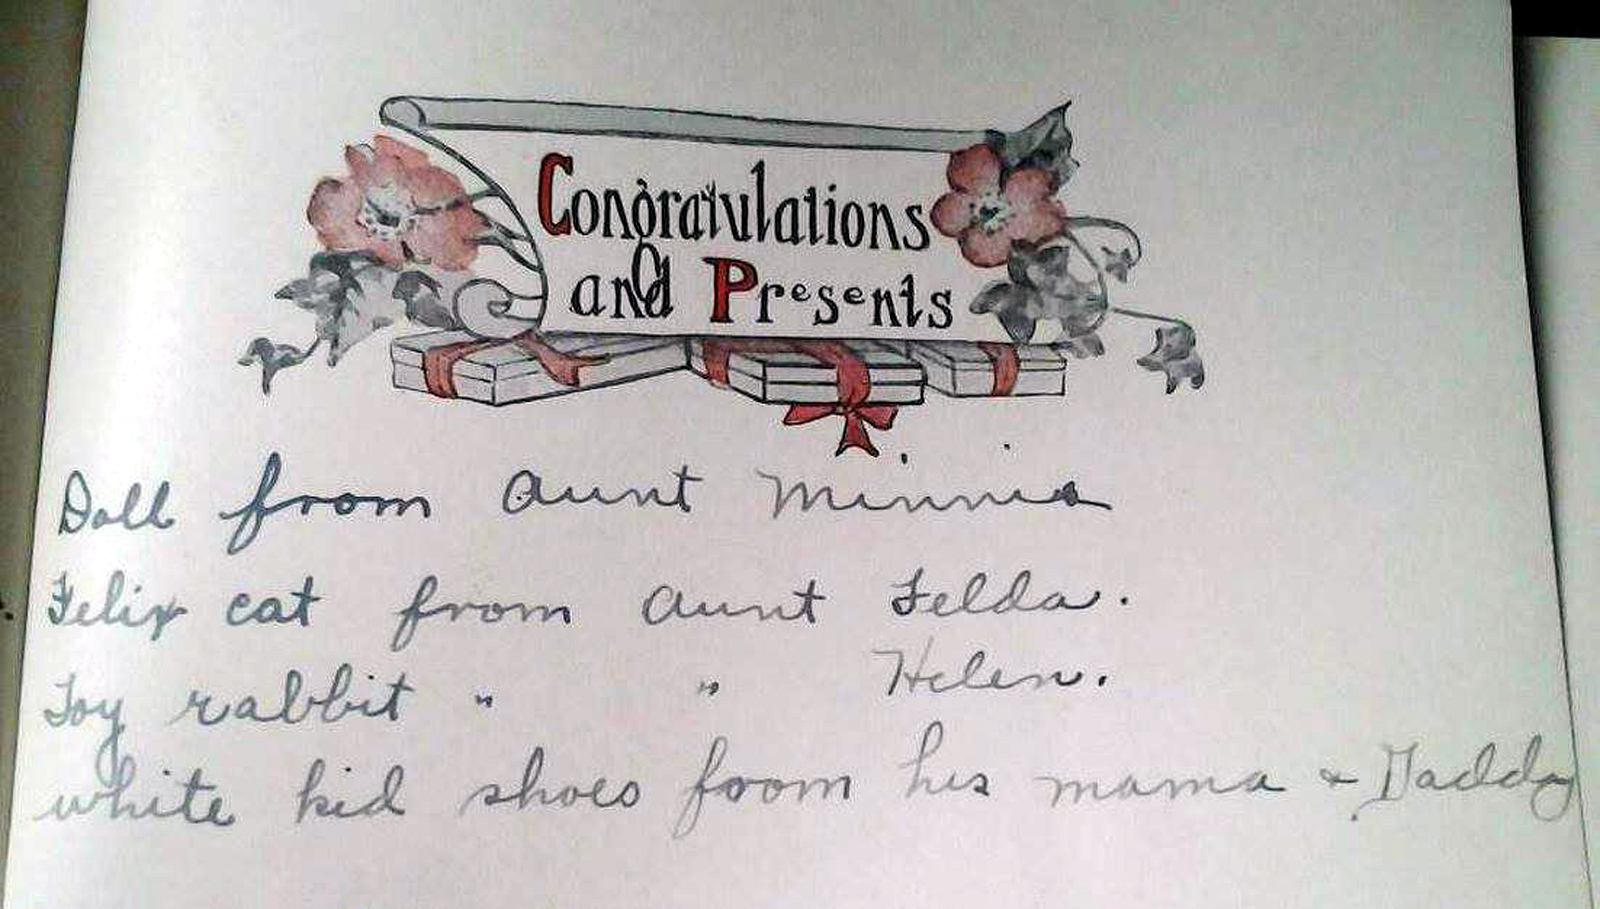 Congratulations
and Presents
Doll from Aunt Minnie
Felix cat from Aunt Felda.
Toy rabbit " " Helen.
white kid shoes from his mama & Daddy